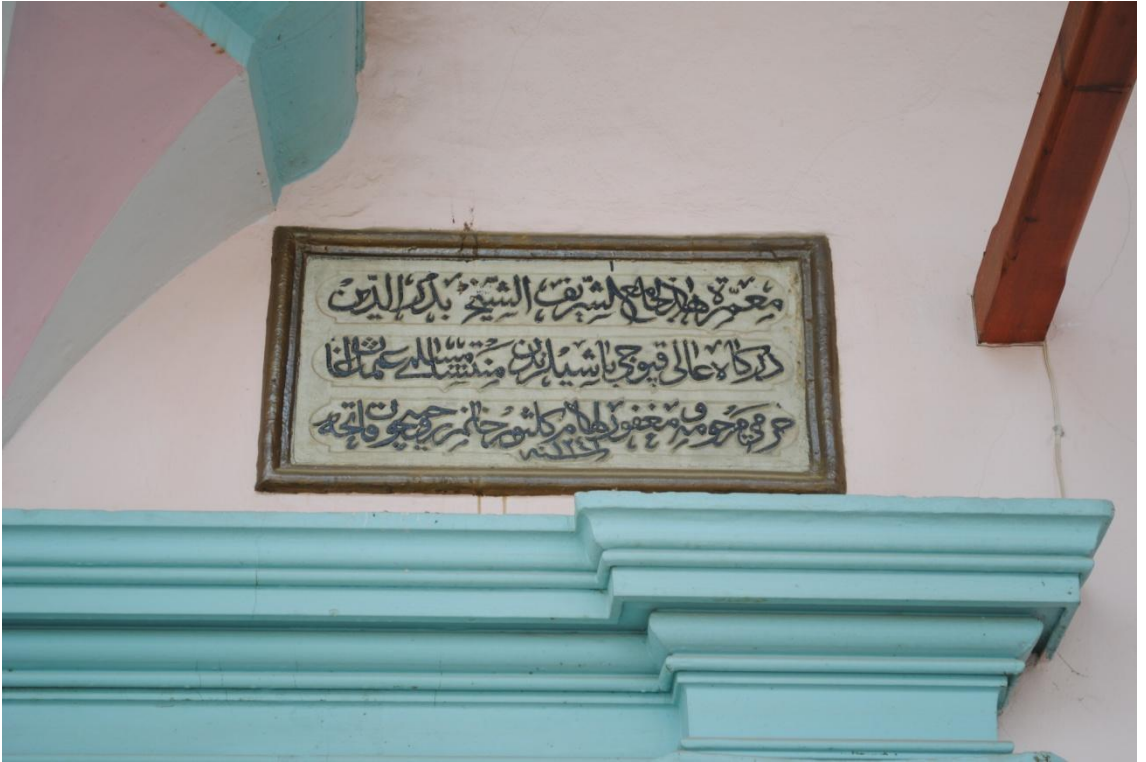 معمرة هذا الجامع الشريف الشيخ بدر الدين
دركاه عالى قپوجى باشيلرندن منتسللى عثمان اغا
حرمى مرحومه و مغفور لها ام كلثوم خانمڭ روحيچون فاتحه
سنه ١٢٤٢